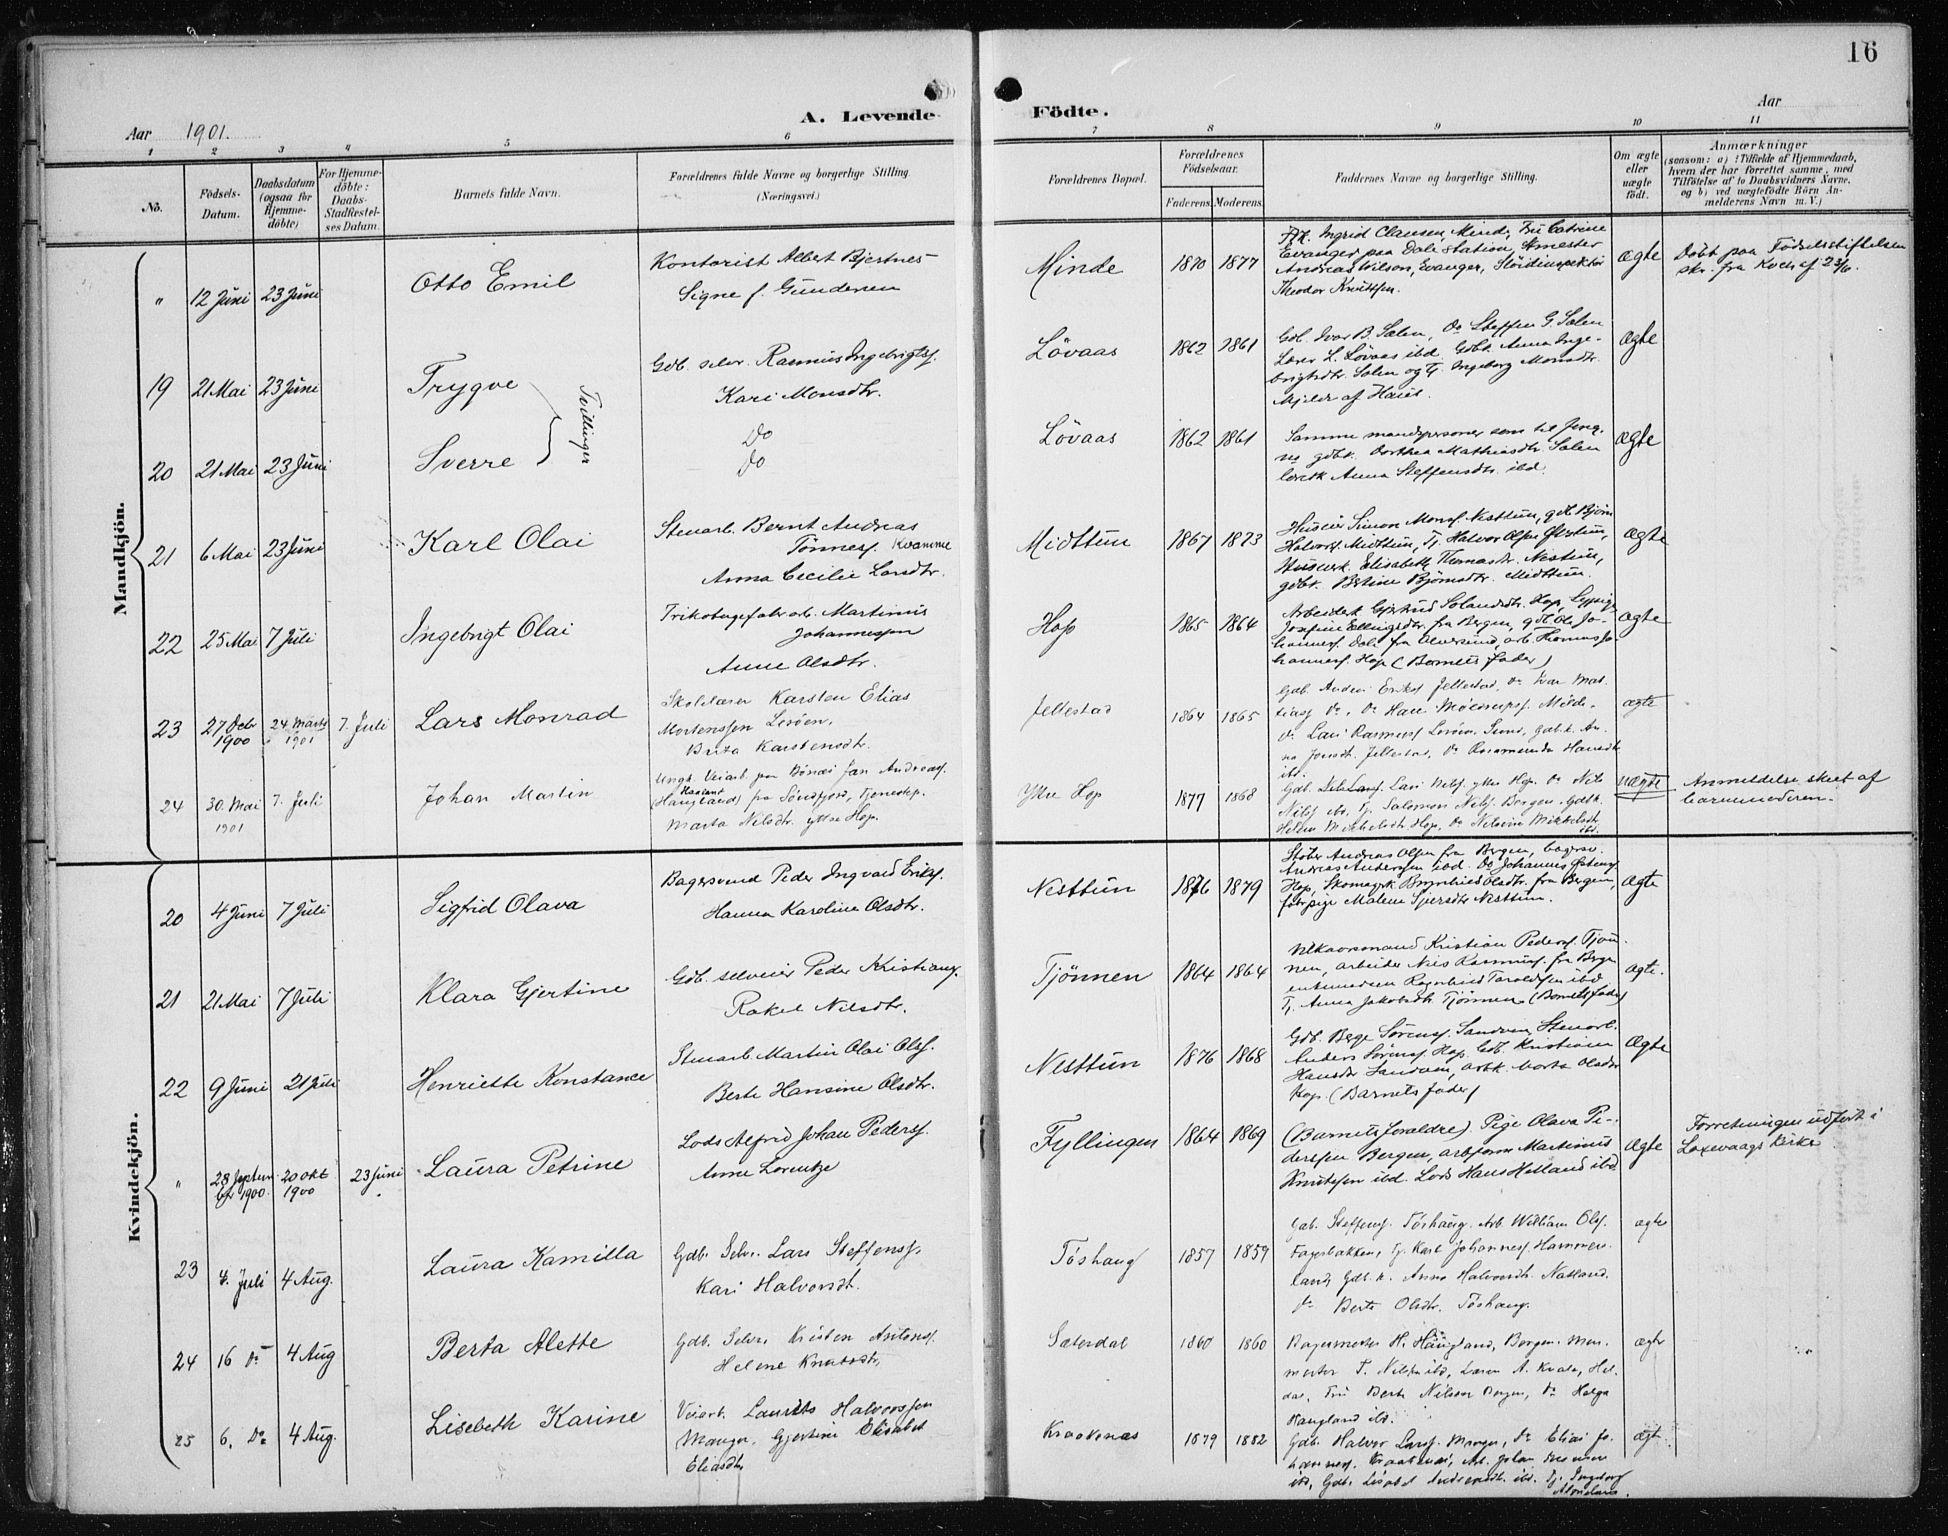 16
A. Levende Födte.
Aar 1901.
Aar
1 2 3 4 5 6 7 8 9 10 11
No.
Födsels-
Datum.
Daabsdatum
(ogsaa for
Hjemme-
döbte)
For Hjemme-
döbte:
Daabs-
Stadfæstel-
ses Datum.
Barnets fulde Navn.
Forældrenes fulde Navne og borgerlige Stilling
(Næringsvei.)
Forældrenes Bopæl.
Forældrenes
Födselsaar.
Faderens. Moderens.
Faddernes Navne og borgerlige Stilling.
Om ægte
eller
uægte
födt.
Anmærkninger
(saasom: a) i Tilfælde af Hjemmedaab,
hvem der har forrettet samme, med
Tilföielse af to Daabsvidners Navne,
og b) ved uægtefödte Börn An-
melderens Navn m. V.)
Mandkjön.
" 12 Juni 23 Juni Otto Emil
Kontorist Albert Bjertnes
Signe f. Gundersen
Minde 1870 1877
Frk. Ingrid Clausen Minde, Fru Catrine
Evanger paa Dale Station,
Andreas Wilson, Evanger, Slöidinspektör
Theodor Knutsen.
ægte
Döbt paa Födselsstiftelsen
skr. fra Koch af 23/6.
19 21 Mai 23 Juni Trygve
Tvillinger
Gdb. selv. Rasmus Ingebrigts.
Kari Monsdtr.
Lövaas 1862 1861
Gdb. Ivar B. Sælen, Do Steffen G. Sælen
Lærer L. Lövaas ibd. Gdbk. Anna Inge-
brigtsdtr. Sælen og Tj. Ingeborg Monsdtr.
Mjelde af Haus.
Ægte
20 21 Mai 23 Juni Sverre
Do
Do
Lövaas 1862 1861
Samme mandspersoner som til
gdbk. Dorthea Mathiasdtr. Sælen
Anna Steffensdtr. ibd.
Ægte
21 6 Mai 23 Juni Karl Olai
Stenarb. Bernt Andreas
Tönnes. Kvamme
Anna Cecilie Larsdtr.
Midttun 1867 1873
Simon Mons. Nesttun, gdb. Björn
Halvors. Midttun, Tj. Halvor Olsen
Elisabeth Thomasdtr. Nesttun,
gdbk. Bertine Björnsdtr. Midttun.
Ægte
22 25 Mai 7 Juli Ingebrigt Olai
Trikotagefabr. arb. Martinus
Johannessen
Anne Olsdtr.
Hop 1865 1864
Arbeiderk. Gjertrud Hop,
Josefine Ellingsdtr. fra Bergen, gdb. Ole Jo-
hannes. Dale fra Alversund, arb. Thomas Jo-
hannes. Hop (Barnets fader)
Ægte
23 27 Octr 1900 24 Marts 1901 7. Juli Lars Monrad
Skolelærer Karsten Elias
Mortenssen Leröen,
Brita Karstensdtr.
Jellestad 1864 1865
Gdb. Anders Eriks. Jellestad, Do Ivar Mat-
tias. Do, Do Hans
Do Lars Rasmus. Leröen Sund, gdbk. An-
na Jonsdtr. Jellestad, Do Rasmunda Hansdtr.
ibd.
ægte
24 30. Mai 1901 7. Juli Johan Martin
Ungk. Veiarb. paa Bönæs Jan Andreas.
(Haugland) fra Söndfjord, Tjenestep.
Marta Nilsdtr. yttre Hop.
Ytre Hop 1877 1868
Gdb. Lars Nils. yttre Hop. Do Nils
Nils. ibd, Tj. Salomon Nils. Bergen. Gdbk.
Helene Mikkelsdtr. Hop, Do Nilsine Mikkelsdtr.
ibd.
uægte
Anmeldelse skeet af
barnemoderen.
Kvindekjön.
20 4 Juni 7 Juli Sigfrid Olava
Bagersvend Peder Ingvald Eriks.
Hanna Karoline Olsdtr.
Nesttun 1876 1879
Stöber Andreas Olsen fra Bergen, bagersv.
Andreas Andersen ibd. Do Johannes
Hop, Skomagrk. Brynhild Olsdtr. fra Bergen,
fabr. pige Malene Sjursdtr Nesttun.
Ægte
21 21 Mai 7 Juli Klara Gjertine
Gdb. selveier Peder Kristians.
Rakel Nilsdtr.
Tjönnen 1864 1864
Kristian Peders. Tjön-
nen, arbeider Nils Rasmus. fra Bergen
enkemadam Ragnhild ibd
Tj. Anna Jakobsdtr. Tjönnen (Barnets fader)
Ægte.
22 9 Juni 21 Juli Henriette Konstance
Stenarb. Martin Olai Ols.
Berte Hansine Olsdtr.
Nesttun 1876 1868
Gdb. Berge Sörens. Sandven, Stenarb.
Anders Sörens. Hop. Gdb. Kristiane
Hansdtr Sandven, arbk. Marta Olsdtr
Hop. (Barnets fader)
Ægte
" 28 Septem br 1900. 20 Okt 1900 23 Juni Laura Petrine
Lods Alfred Johan Peders.
Anne Lorentze
Fyllingen 1864 1869
(Barnets foraldre). Pige Olava Pe-
dersen Bergen, arbform. Martinus
Knutssen ibd. Lods Hans Helland ibd
Ægte
Forretningen udfört i
Laxevaags kirke
23 4. Juli 4 Aug. Laura Kamilla
Gdb. Selv. Lars Steffens.
Kari Halvorsdtr.
Töshaug 1857 1859
Gdb. Steffens. Töshaug. Arb. William Ols.
Fagerbakken, Tj. Karl Johannes. Hammers-
land, Gdb. k. Anna Halvorsdtr. Natland.
Do Berte Olsdtr. Töshaug.
ægte
24 16 Do 4 Aug Berta Alette
Gdb. Selv. Kristen Antons.
Helene Knutsdtr.
Sætersdal 1860 1860
Bagermester H. Haugland, Bergen. Mur-
mester T. Nilsen ibd, Lærer A. Kvale, Hel-
dal, Fru Berte Nilsen Bergen, Do Helga
Haugland ibd.
ægte
25 6. Do 4 Aug. Lisebeth Karine
Veiarb. Laurits Halvorssen
Manger, Gjertine Elisabet
Eliasdtr.
Kraakenæs 1879 1882
Gdb. Halvor Lars. Manger, Do Elias Jo-
hannes. Kraakenæs, Arb. Johan
ibd, Gdb. Lisabet Andersdtr. ibd. Tj. Ingeborg
ægte